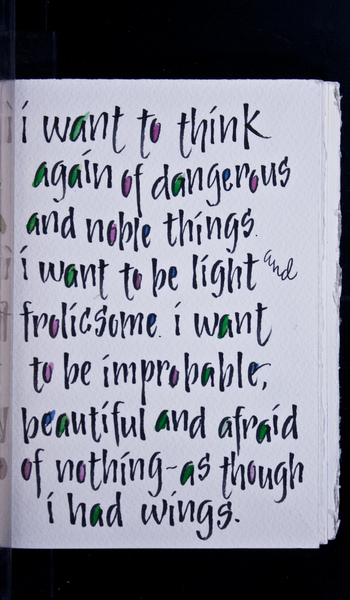 i want to think
again of dangerous
and noble things.
i want to be light and
frolicsome. i want
to be improbable,
beautiful and afraid
of nothing-as though
i had wings.